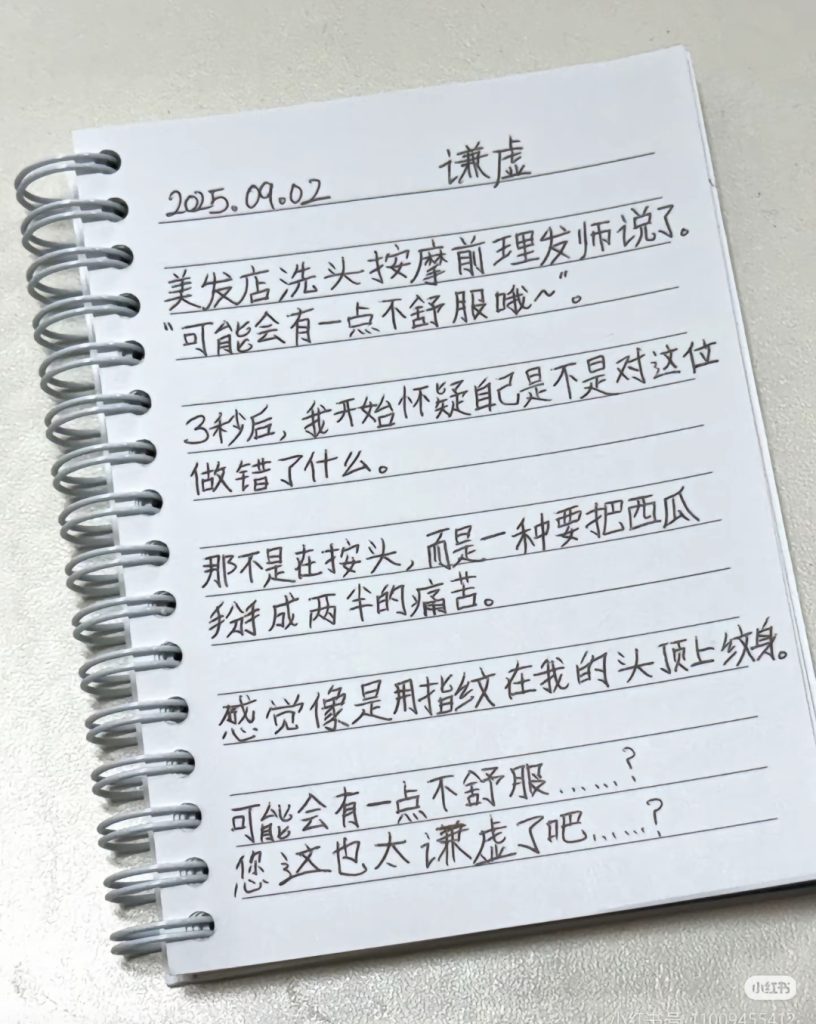 2025.09.02 谦虚
美发店洗头按摩前理发师说了。
“可能会有一点不舒服哦~”。
3秒后,我开始怀疑自己是不是对这位
做错了什么。
那不是在按头,而是一种要把西瓜
掰成两半的痛苦。
感觉像是用指纹在我的头顶上纹身。
可能会有一点不舒服......?
您这也太谦虚了吧......?
小红书
小红书号:11009455412